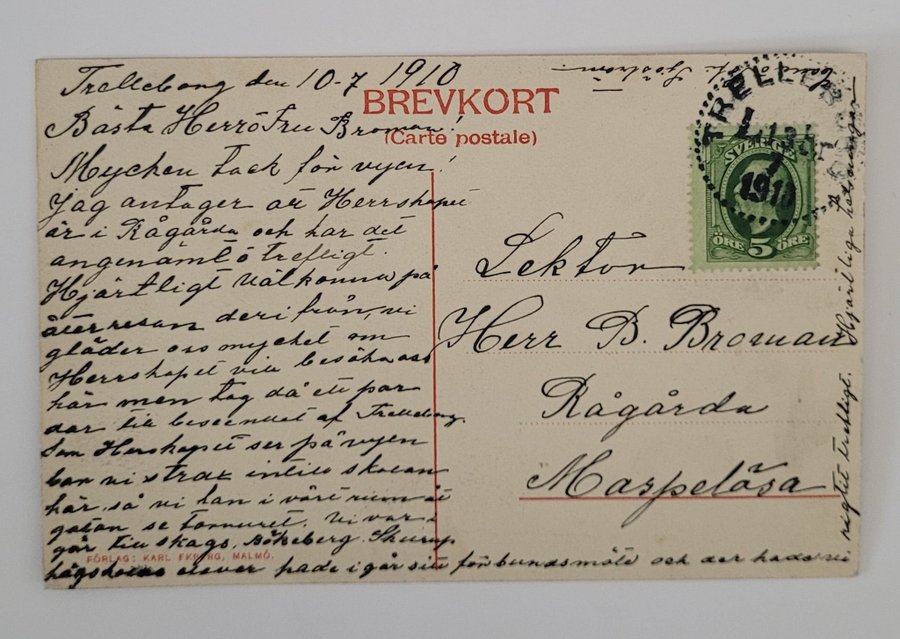 Trelleborg den 10-7 1910
BREVKORT
(Carte postale)
Bästa Herr o Fru Broman!
Mycken tack för vyen!
Jag antager att Herrskapet
är i Rågårda och har det
angenämt o trefligt.
Hjärtligt välkomna på
återresan derifrån, vi
gläder oss mycket om
Herrskapet vill besöka oss
här men tag då ett par
dar till beseendet af Trelleborg.
Som Herskapet ser på vyen
bor vi strax intill skolan
här, så vi kan i vårt rum åt
gatan se tornuret. Vi var i
går till skogs, Bökeberg. Skurups
högskolas elever hade i går sitt förbundsmöte och der hade vi
rigtit trefligt.
Hjärtliga helsningar
TRELLEBORG
1910
SVERGE
ÖRE 5 ÖRE
Lektor
Herr B. Broman
Rågårda
Maspelösa
FÖRLAG: KARL EKBERG, MALMÖ.